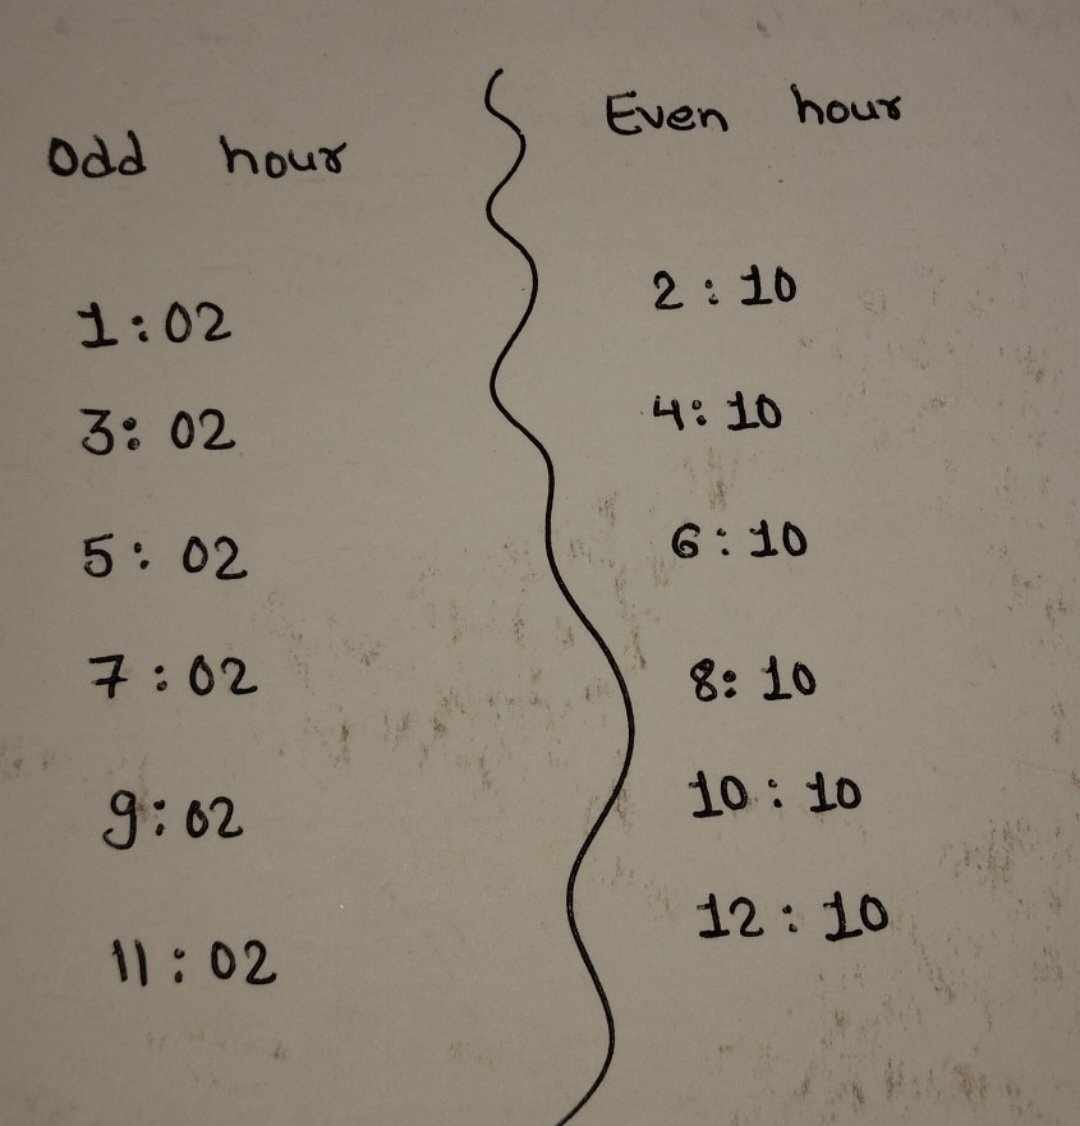 Odd hour
1:02
3:02
5:02
7:02
9:02
11:02
Even hour
2:10
4:10
6:10
8:10
10:10
12:10